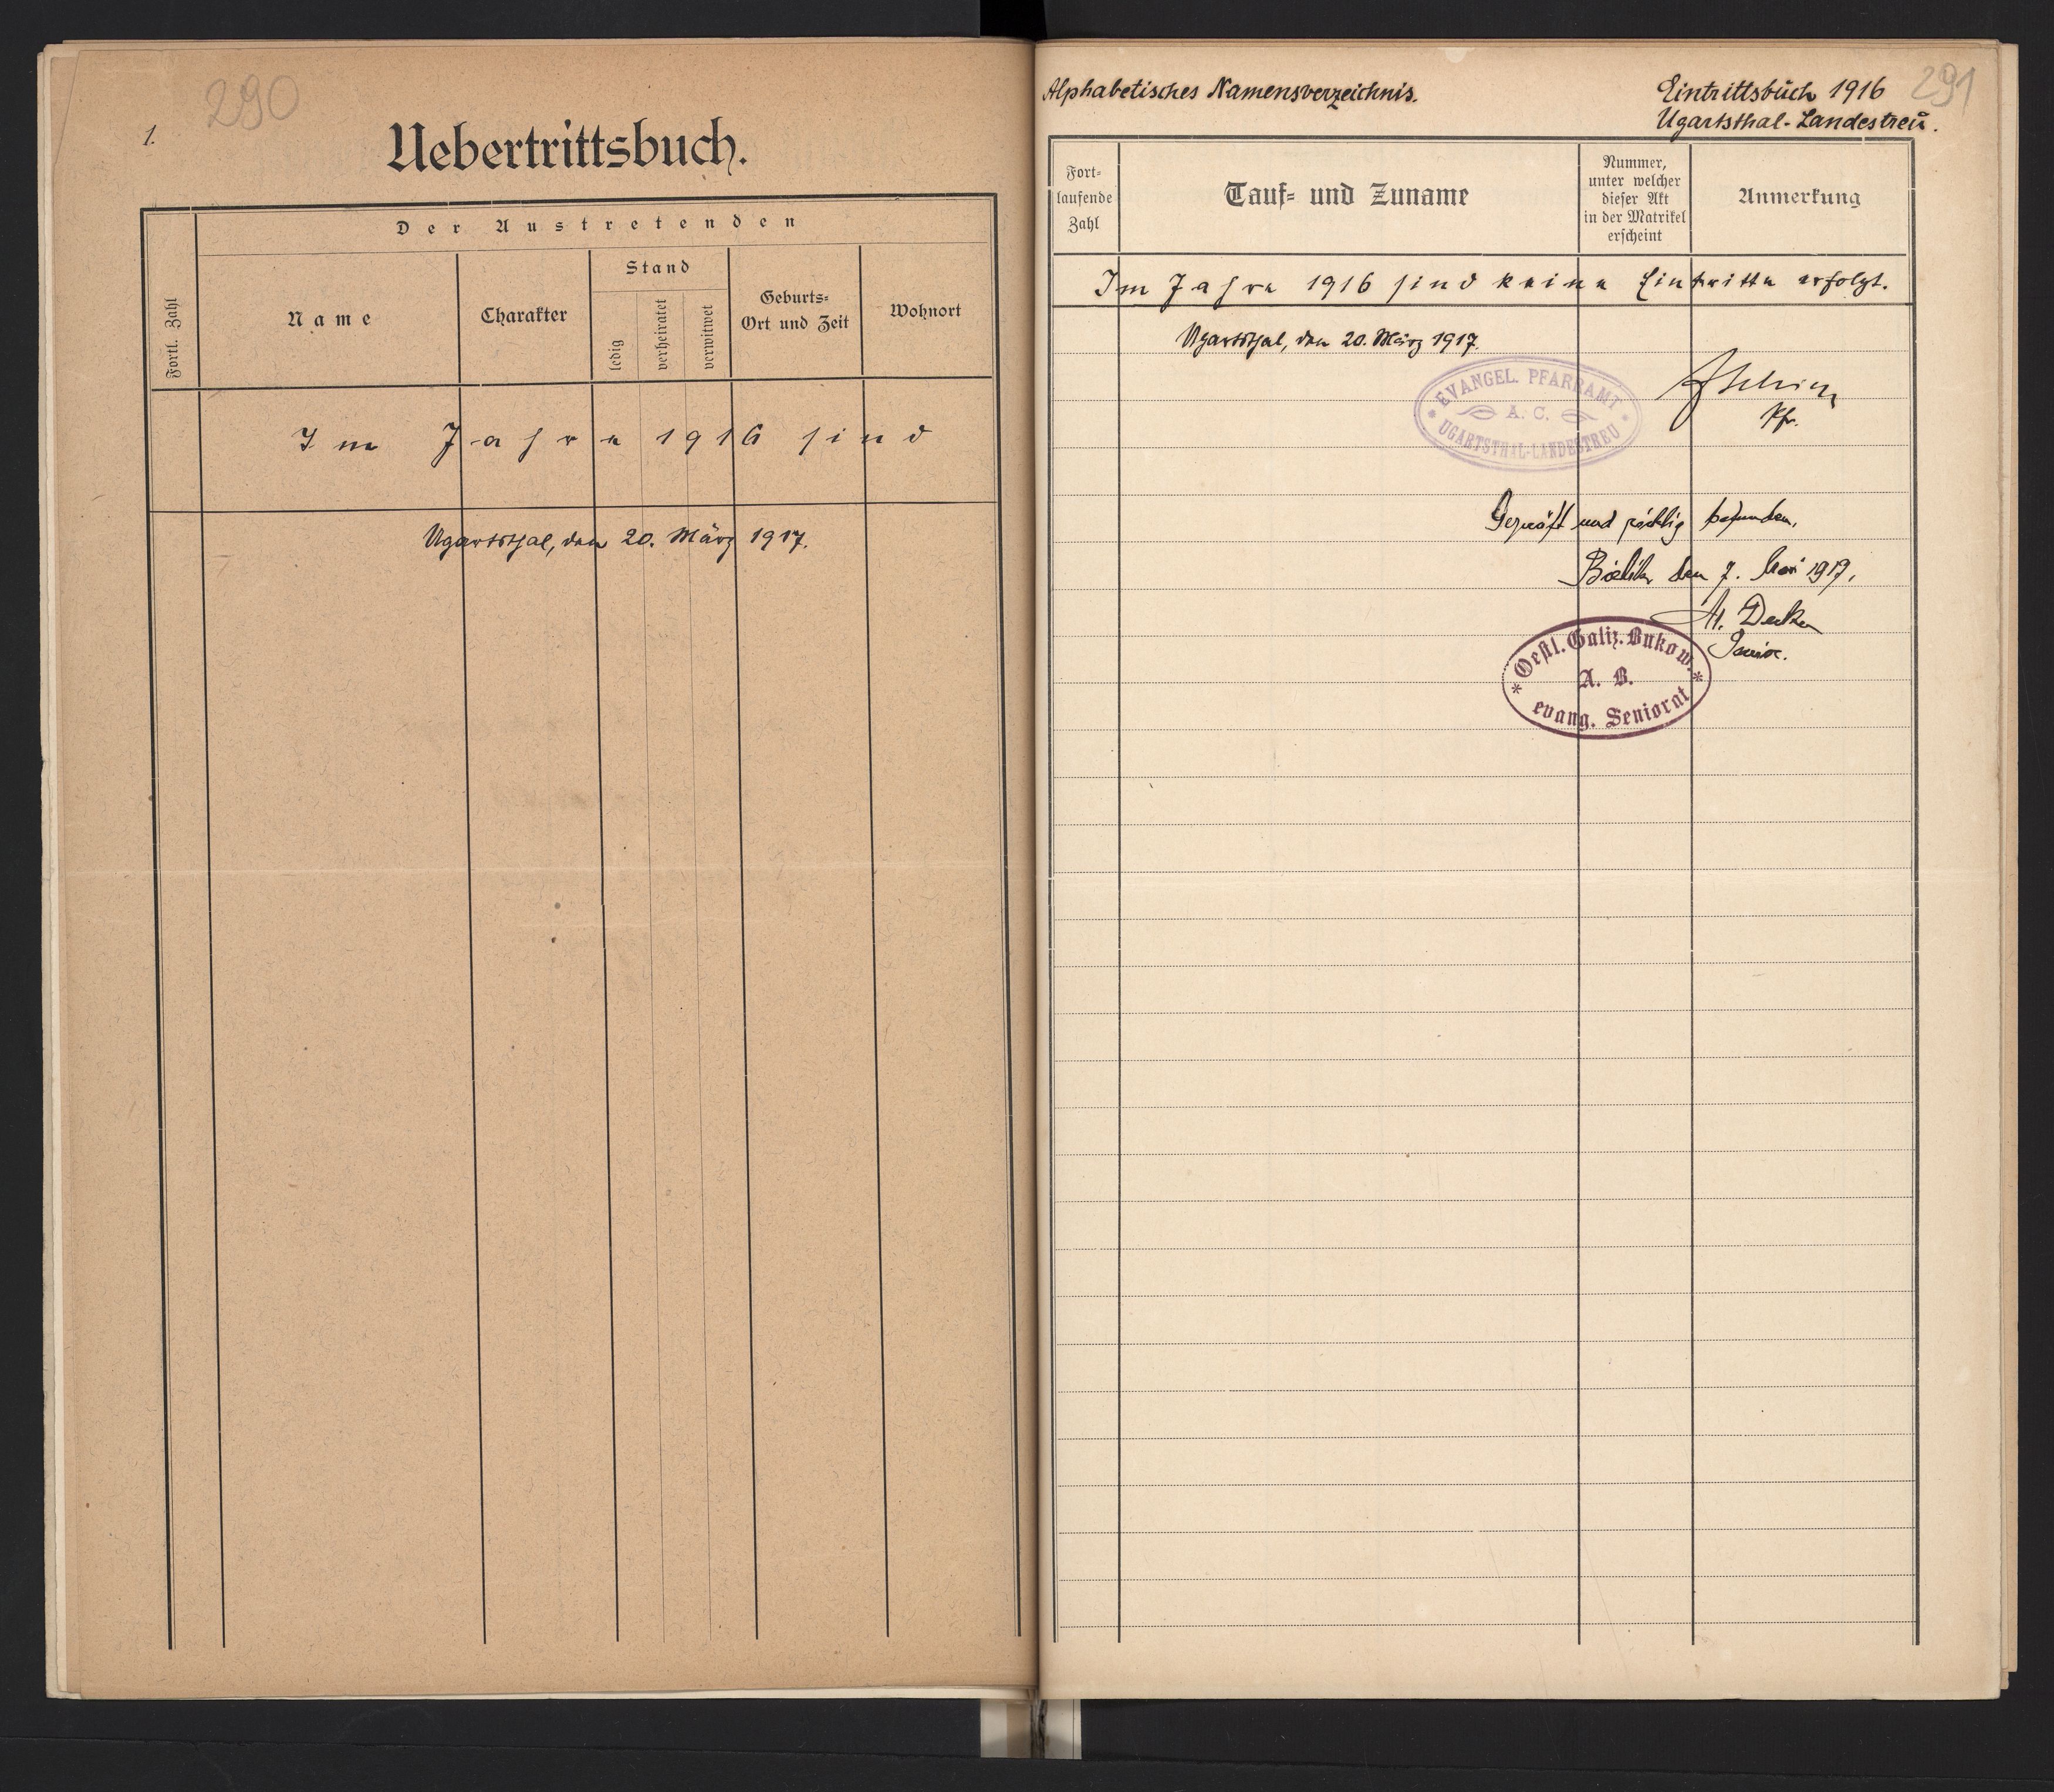 290
1.
Uebertrittsbuch.
Der Austretenden
Fortl. Zahl
Name
Charakter
Stand
ledig
verheiratet
verwitwet
Geburts-
Ort und Zeit
Wohnort
Im Jahre 1916 sind
Ugartsthal, den 20. März 1917.
291
Alphabetisches Namensverzeichnis.
Eintrittsbuch 1916
Ugartsthal-Landestreu.
Fort-
laufende
Zahl
Tauf- und Zuname
Nummer,
unter welcher
dieser Akt
in der Matrikel
erscheint
Anmerkung
Im Jahre 1916 sind keine Eintritte erfolgt.
Ugartsthal, den 20. März 1917.
EVANGEL. PFARRAMT
A. C.
UGARTSTHAL-LANDESTREU
Pfr.
Geprüft und richtig befunden.
den 7. Mai 1917.
Senior.
Oestl. Galiz. Bukow.
A. B.
evang. Seniorat